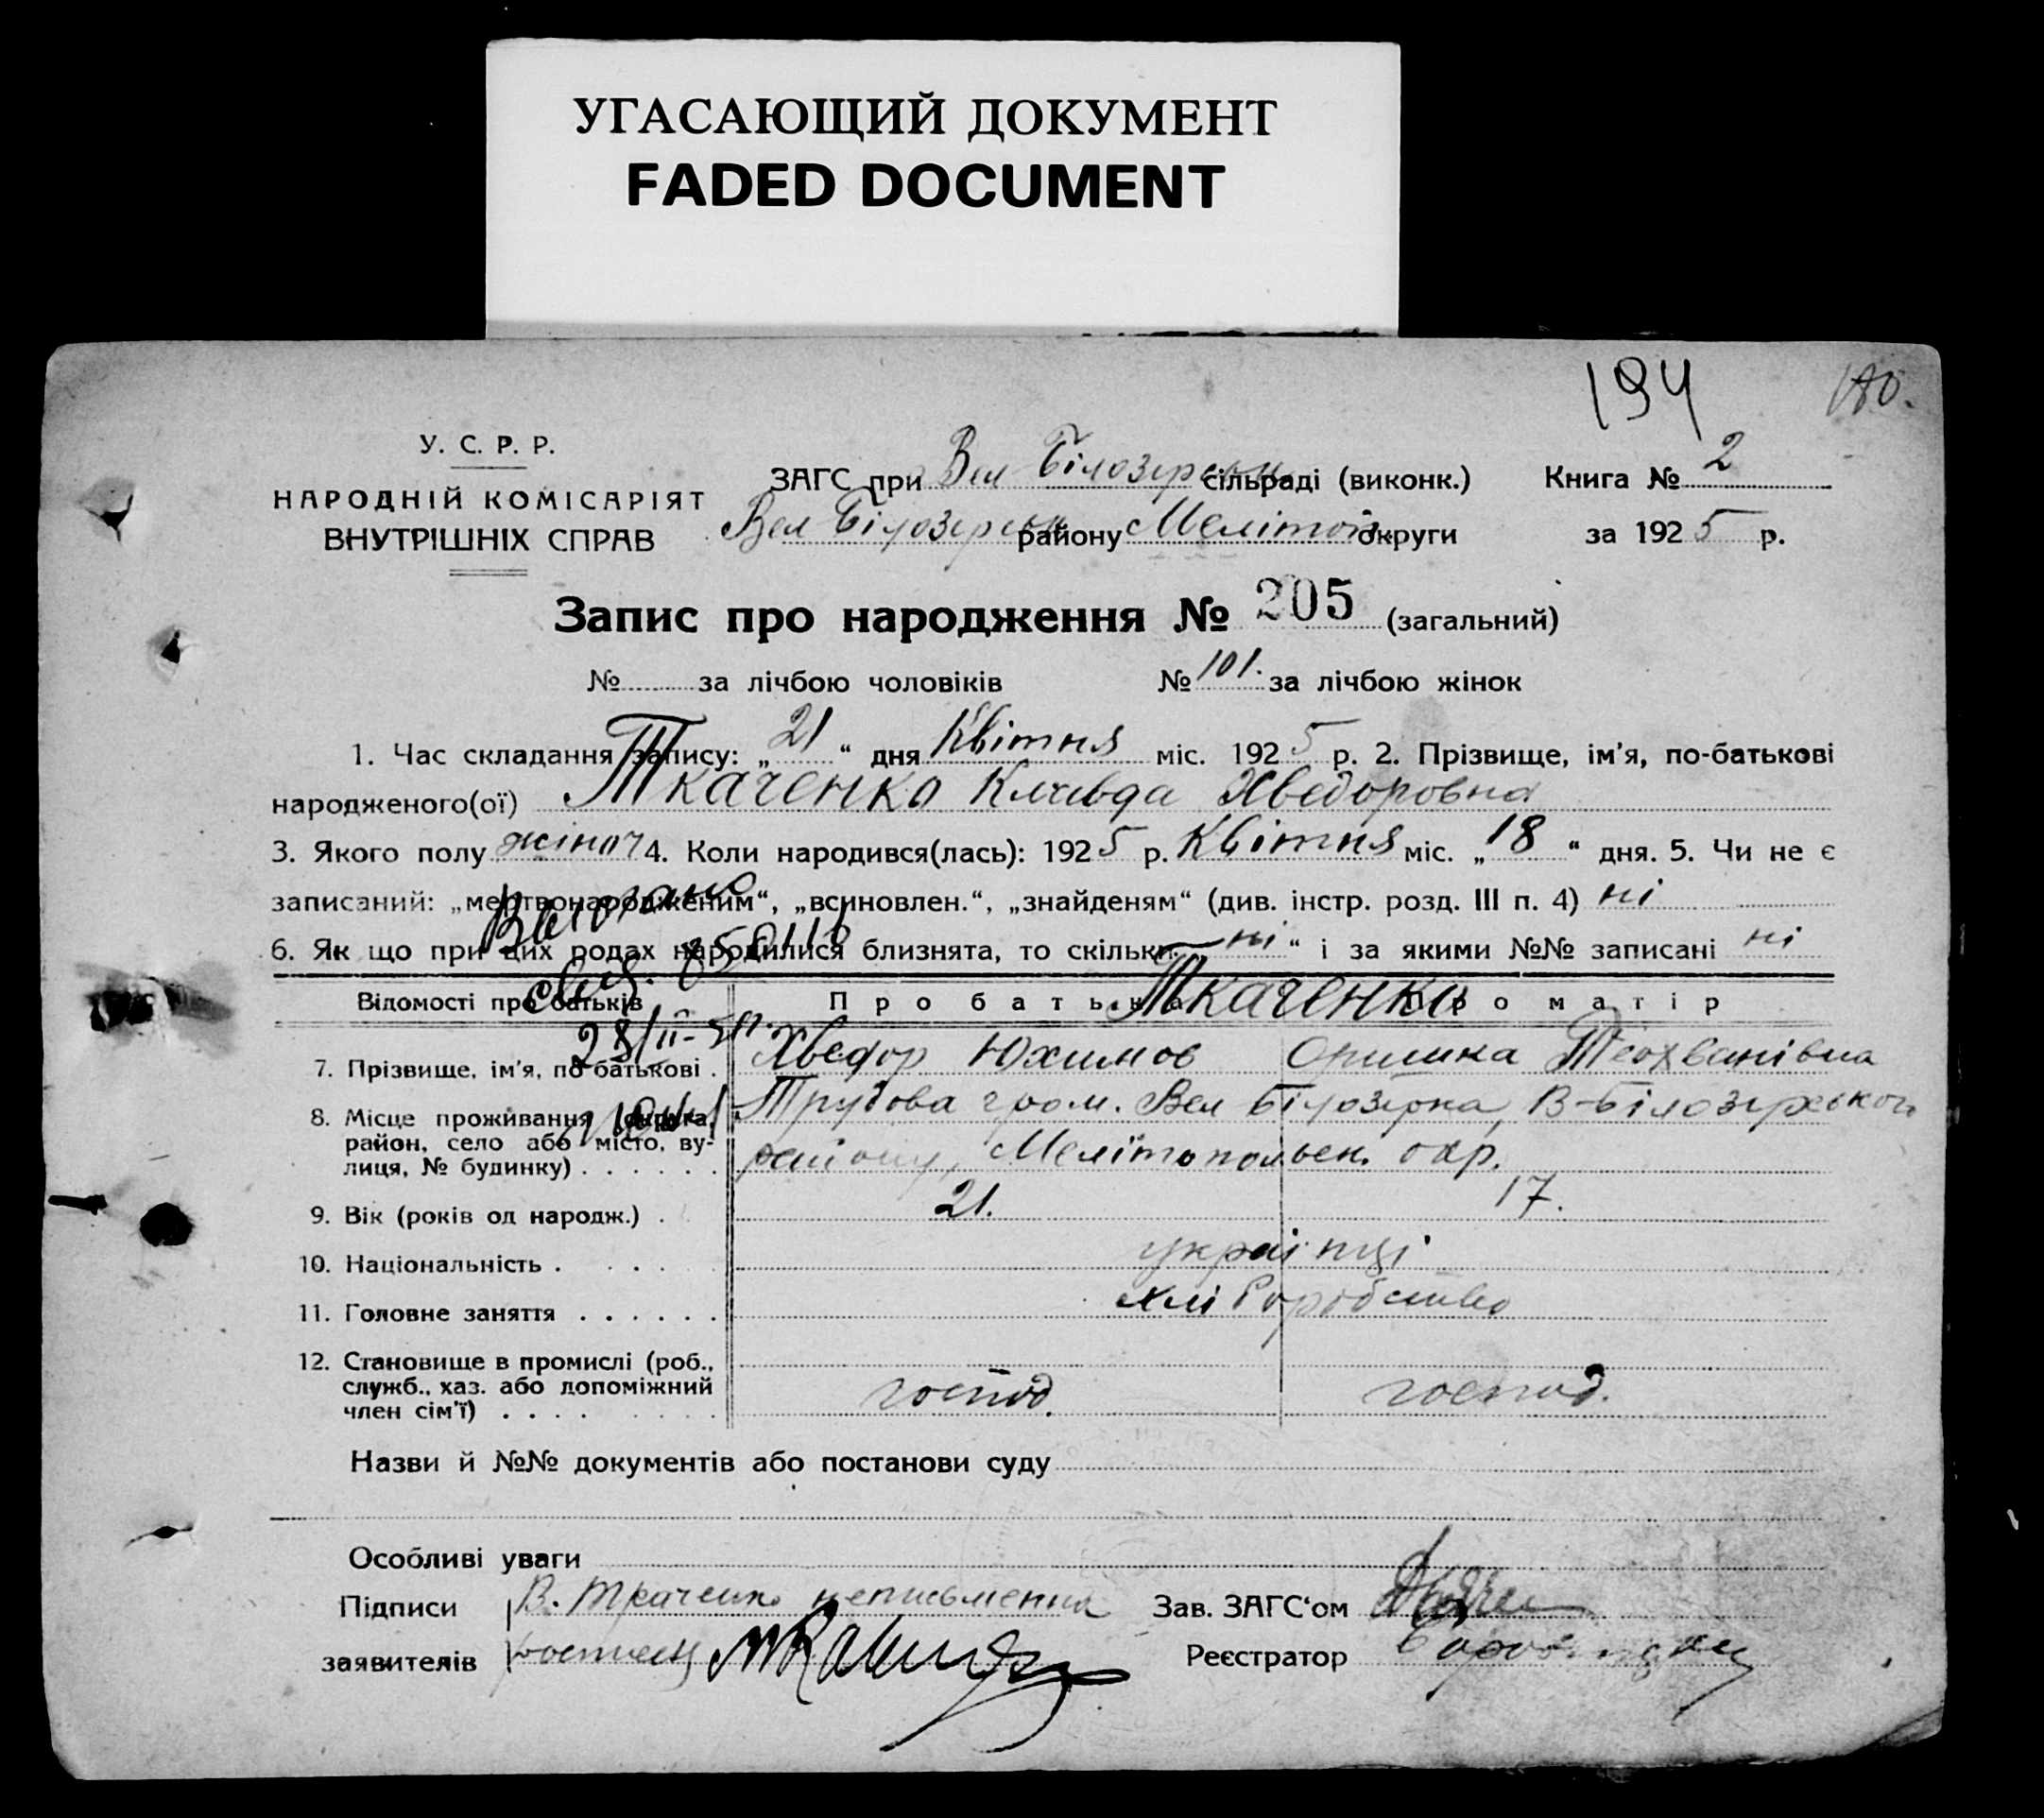 УГАСАЮЩИЙ ДОКУМЕНТ
FADED DOCUMENT
194
У. С. Р. Р.
НАРОДНІЙ КОМІСАРІЯТ
ВНУТРІШНІХ СПРАВ
ЗАГС при Вел Білозерськ сільраді (виконк.) Книга № 2
Вел Білозерськ району Мелітоп. округи за 1925 р.
Запис про народження № 205 (загальний)
№ за лічбою чоловіків № 101. за лічбою жінок
1. Час складання запису: „21“ дня Квітня міс. 1925 р. 2. Прізвище, ім'я, по-батькові
народженого(ої) Ткаченко Клавда Хведоровна
3. Якого полу жіноч 4. Коли народився(лась): 1925 р. Квітня міс. „18“ дня. 5. Чи не є
записаний: „мертвонародженим“, „всиновлен.“, „знайденям“ (див. інстр. розд. III п. 4) ні
6. Як що при цих родах народилися близнята, то скільки „ні“ і за якими №№ записані ні
Відомості про батьків Про батька Про матір
Ткаченко
7. Прізвище, ім'я, по-батькові . Хведор Юхимов Оришка
8. Місце проживання (округа, район, село або місто, ву-
лиця, № будинку) . . . . . .
Трудова гром. Вел Білозірка, В-Білозірського
району, Мелітопольськ. окр.
9. Вік (років од народж.) . 21. 17.
10. Національність . . . . українці
11. Головне заняття . . . . . . хліборобство
12. Становище в промислі (роб.,
служб., хаз. або допоміжний
член сім'ї) . . . . господ. господ.
Назви й №№ документів або постанови суду
Особливі уваги
Підписи В. Ткаченко неписьменна Зав. ЗАГС‘ом
заявителів Реєстратор